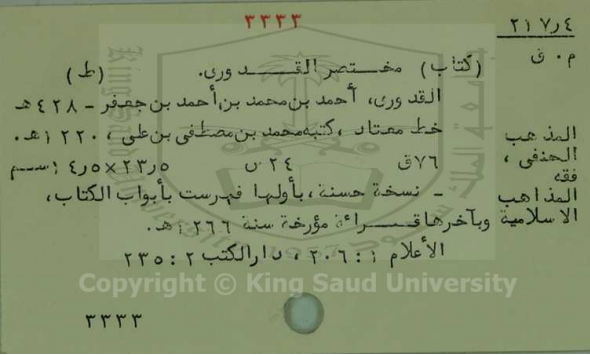 ٣٣٣٣
٢١٧ر٤
م٠ق
(كتاب) مختصر القدورى. (ط)
القدورى، أحمد بن محمد بن أحمد بن جعفر - ٤٢٨هـ
خط معتاد، كتبه محمد بن مصطفى بن على، ١٢٢٠هـ.
٧٦ق ٢٤س ٢٣ر٥×١٤ر٥سم
- نسخة حسنة، بأولها فهرست بأبواب الكتاب،
وبآخرها قراءة مؤرخة سنة ١٢٦٦هـ.
الأعلام ١:٢٠٦، دار الكتب ٢:٢٣٥
المذهب
الحنفى،
فقه
المذاهب
الاسلامية
Copyright © King Saud University
٣٣٣٣